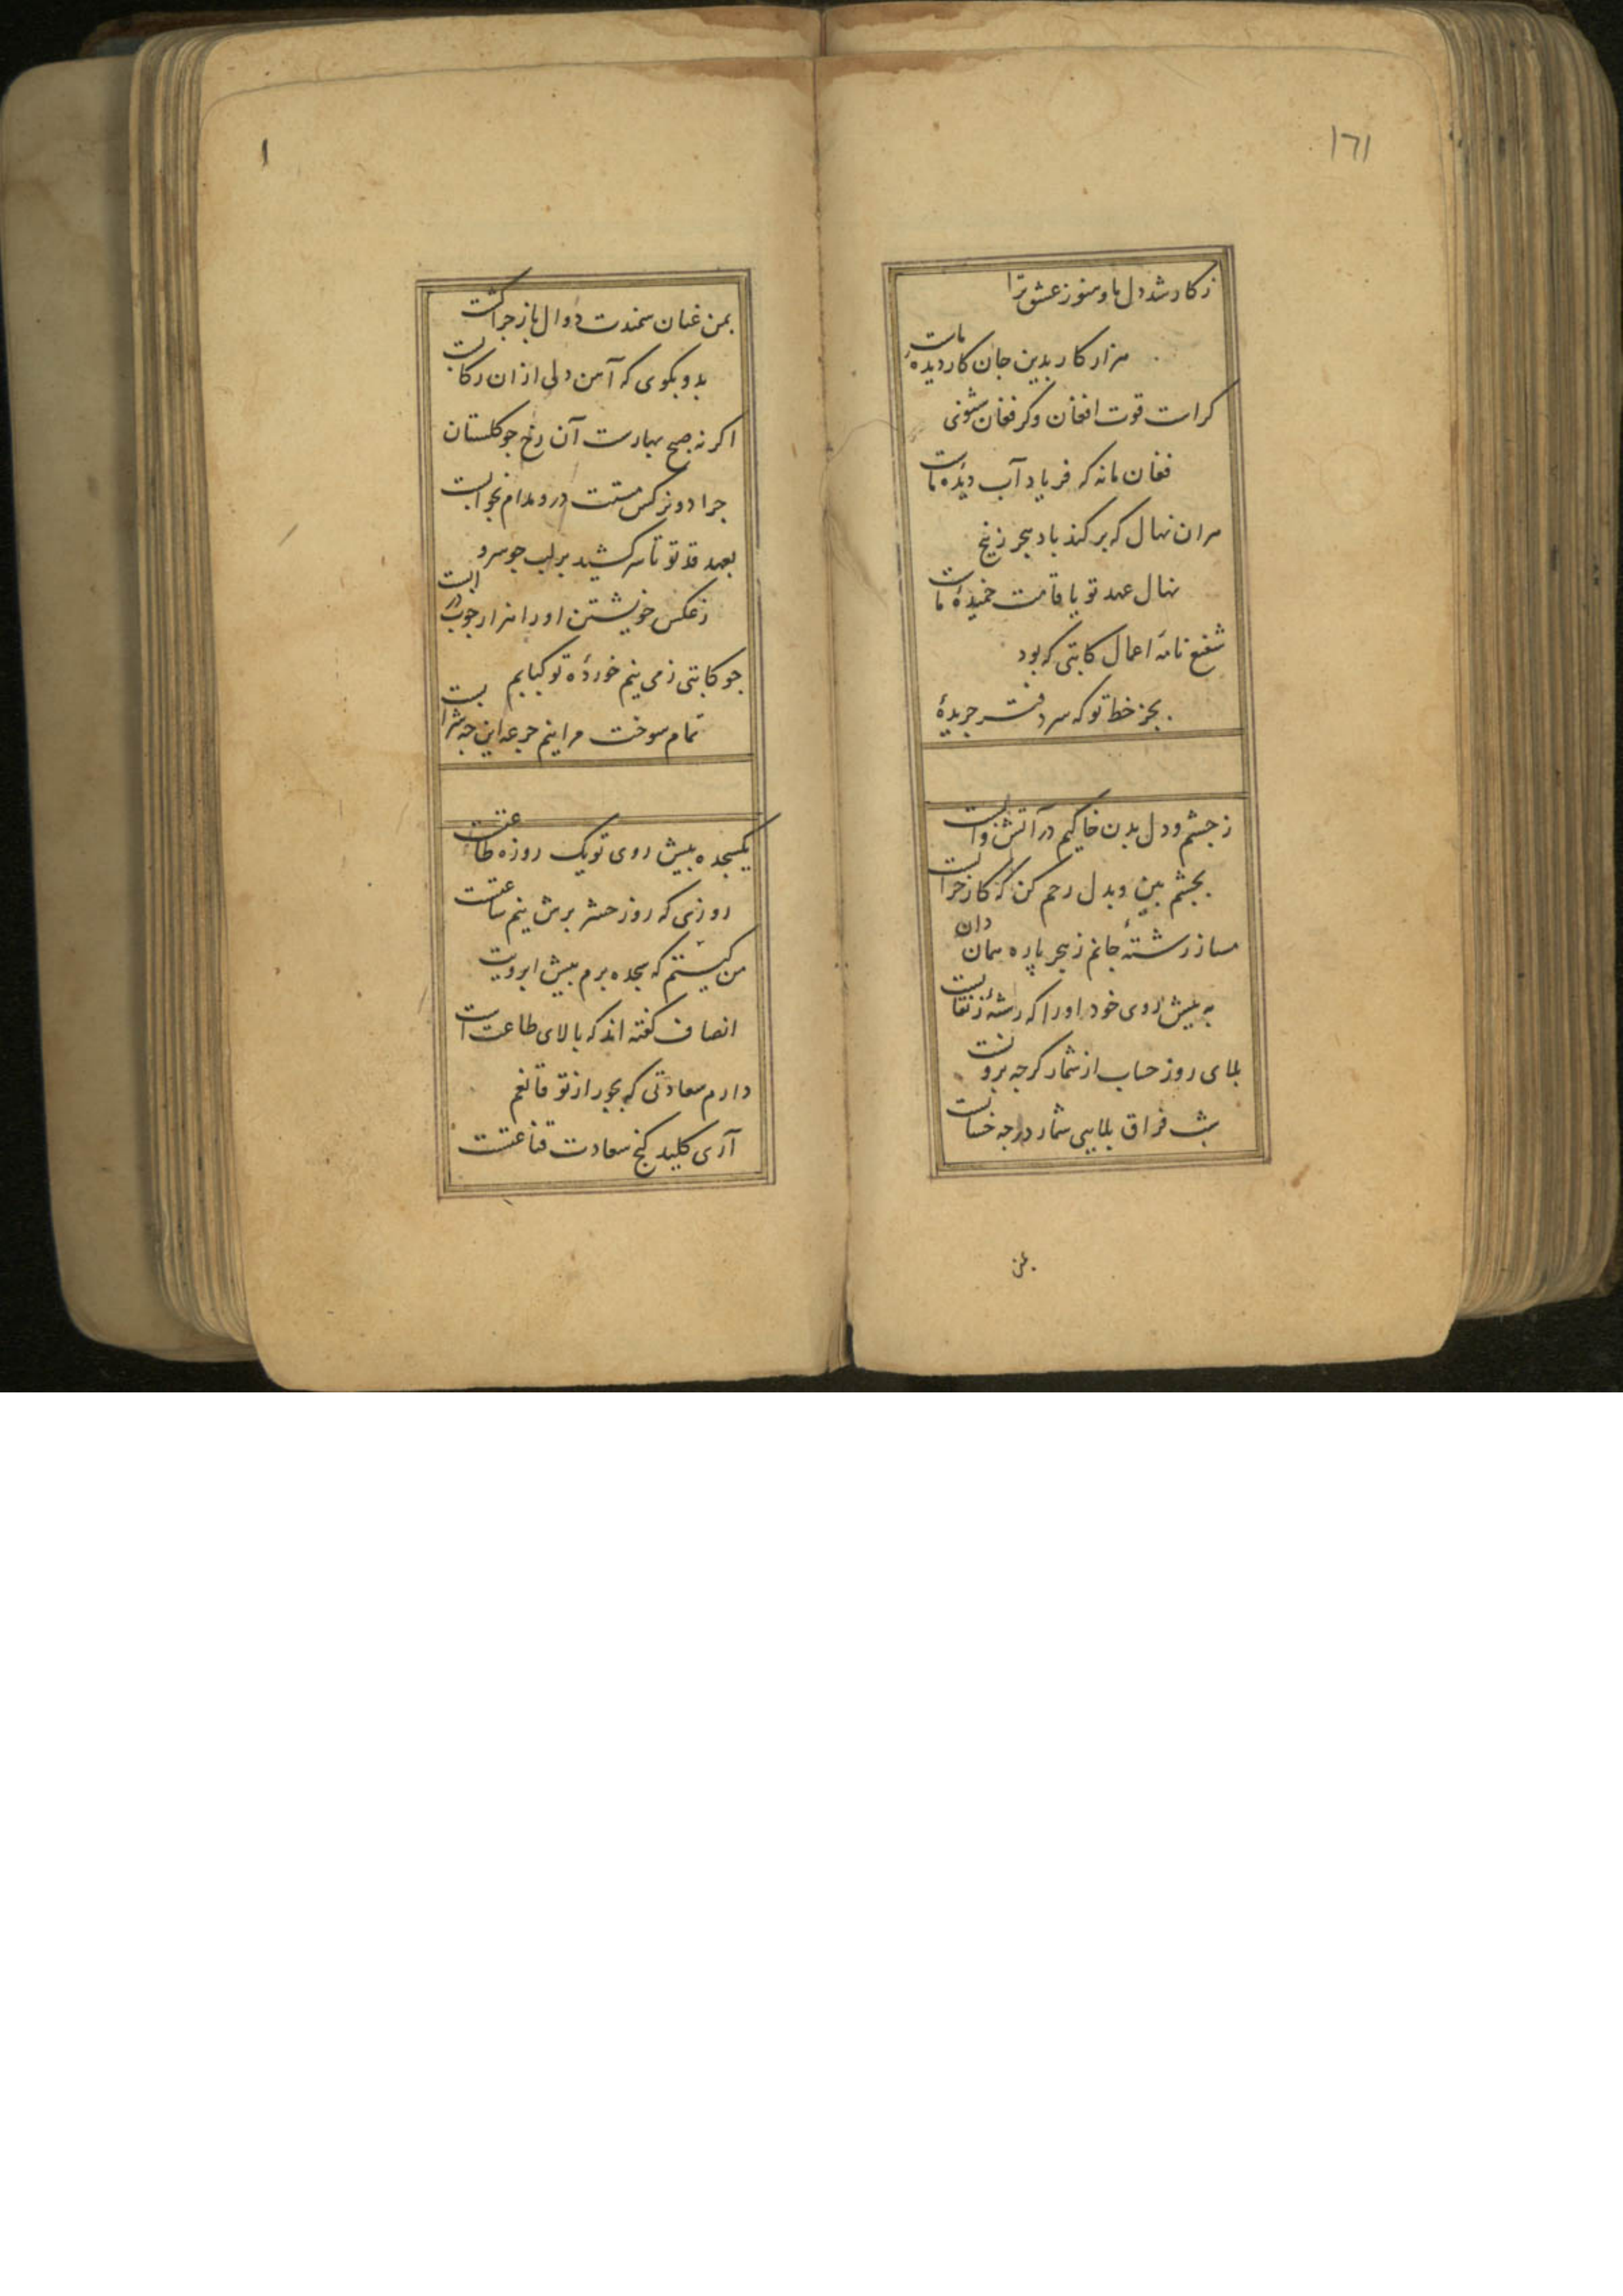 ١٦١
ز کار شد دل ما و هنوز عشق ترا
هزار کار بدین جان کار دیده ماست
کراست قوت افغان وگر فغان شنوی
فغان ما نه که فریاد آب دیدهٔ ماست
هران نهال که برکند باد هجر ز بیخ
نهال عهد تو یا قامت خمیدهٔ ماست
شفیع نامهٔ اعمال کاتبی که بود
بجز خط تو که سر دفتر جریدهٔ
ز چشم و دل بدن خاکیم در آتش و آبست
بچشم بین و بدل رحم کن که کار خرابست
مساز رشتهٔ جانم ز هجر پاره همان دان
به پیش روی خود او را که رشتهٔ ز نقابست
بلای روز حساب از شمار گرچه برونست
شب فراق بلایی شمار در چه حسابست
بمن
١
بمن عنان سمندت دوال باز چرا گشت
بدو بکوی که آهن دلی ازان رکابست
اکر نه صبح بهارست آن رخ چو کلستان
چرا دو نرکس مستت درو مدام بخوابست
بعهد قد تو تا سر کشید بر لب جو سرو
ز عکس خویشتن او را هزار چوب در ابست
چو کاتبی ز می نیم خوردهٔ تو کبابم
تمام سوخت مرا نیم جرعه این چه شرابست
یکسجده پیش روی تو یک روزه طاعتست
روزی که روز حشر برش نیم ساعتست
من کیستم که سجده برم پیش ابرویت
انصاف کفته اند که بالای طاعت است
دارم سعادتی که بجور از تو قانعم
آری کلید کنج سعادت قناعتست